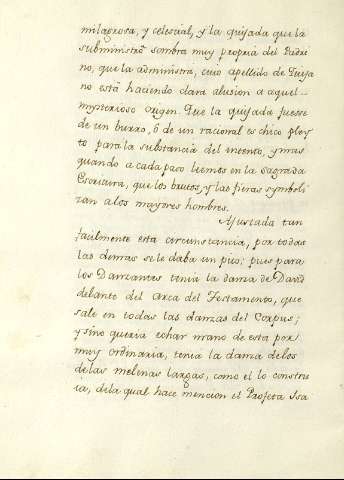 milagrosa, y celestial, y la quijada que la
subministró sombra muy propria del Padri
no, que la administra, cuio apellido de Quija
no está haciendo clara alusion a aquel
mysterioso origen. Que la quijada fuesse
de un burro, ó de un racional es chico pley
to para la substancia del intento, y mas
quando a cada paso leemos en la Sagrada
Escriptura, que los brutos, y las fieras symboli
zan a los mayores hombres.
Ajustada tan
facilmente esta circunstancia, por todas
las demas se le daba un pito; pues para
los Danzantes tenia la danza de David
delante del Arca del Testamento, que
sale en todas las danzas del Corpus;
y sino queria echar mano de esta por
muy ordinaria, tenia la danza de los
de las melenas largas, como el lo constru
ia, de la qual hace mencion el Profeta Isa